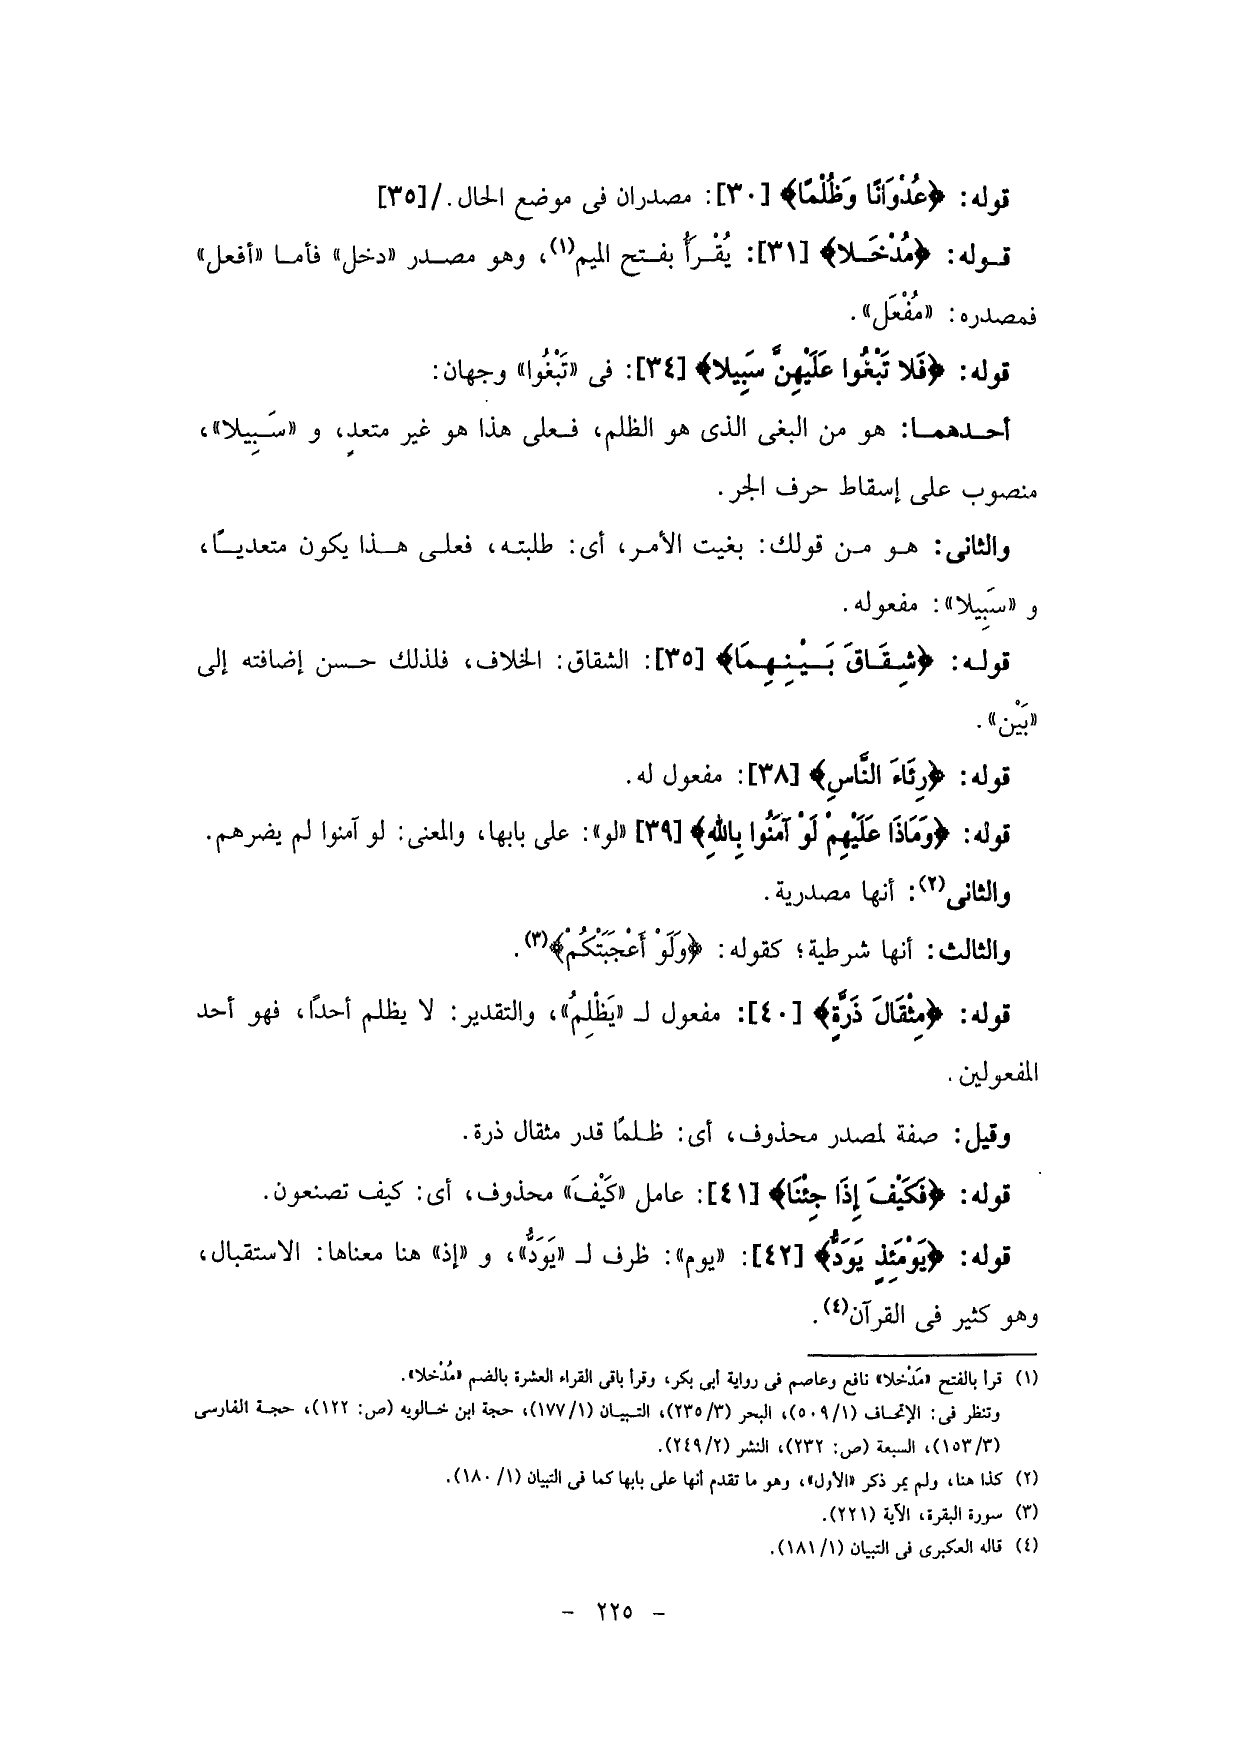 قوله: ﴿عُدْوَانًا وَظُلْمًا﴾ [٣٠]: مصدران فى موضع الحال./[٣٥]
قوله: ﴿مُدْخَلا﴾ [٣١]: يُقْرَأُ بفتح الميم(١)، وهو مصدر «دخل» فأما «أفعل»
فمصدره: «مُفْعَل».
قوله: ﴿فَلا تَبْغُوا عَلَيْهِنَّ سَبِيلا﴾ [٣٤]: فى «تَبْغُوا» وجهان:
أحدهما: هو من البغى الذى هو الظلم، فعلى هذا هو غير متعدٍ، و «سَبِيلا»،
منصوب على إسقاط حرف الجر.
والثانى: هو من قولك: بغيت الأمر، أى: طلبته، فعلى هذا يكون متعديًا،
و «سَبِيلا»: مفعوله.
قوله: ﴿شِقَاقَ بَيْنِهِمَا﴾ [٣٥]: الشقاق: الخلاف، فلذلك حسن إضافته إلى
«بَيْن».
قوله: ﴿رِئَاءَ النَّاسِ﴾ [٣٨]: مفعول له.
قوله: ﴿وَمَاذَا عَلَيْهِمْ لَوْ آمَنُوا بِاللهِ﴾ [٣٩] «لو»: على بابها، والمعنى: لو آمنوا لم يضرهم.
والثانى(٢): أنها مصدرية.
والثالث: أنها شرطية؛ كقوله: ﴿وَلَوْ أَعْجَبَتْكُمْ﴾(٣).
قوله: ﴿مِثْقَالَ ذَرَّةٍ﴾ [٤٠]: مفعول لـ «يَظْلِمُ»، والتقدير: لا يظلم أحدًا، فهو أحد
المفعولين.
وقيل: صفة لمصدر محذوف، أى: ظلمًا قدر مثقال ذرة.
قوله: ﴿فَكَيْفَ إِذَا جِئْنَا﴾ [٤١]: عامل «كَيْفَ» محذوف، أى: كيف تصنعون.
قوله: ﴿يَوْمَئِذٍ يَوَدُّ﴾ [٤٢]: «يوم»: ظرف لـ «يَوَدُّ»، و «إذ» هنا معناها: الاستقبال،
وهو كثير فى القرآن(٤).
(١) قرأ بالفتح «مَدْخلا» نافع وعاصم فى رواية أبى بكر، وقرأ باقى القراء العشرة بالضم «مُدْخلا».
وتنظر فى: الإتحاف (٥٠٩/١)، البحر (٢٣٥/٣)، التبيان (١٧٧/١)، حجة ابن خالويه (ص: ١٢٢)، حجة الفارسى
(١٥٣/٣)، السبعة (ص: ٢٣٢)، النشر (٢٤٩/٢).
(٢) كذا هنا، ولم يمر ذكر «الأول»، وهو ما تقدم أنها على بابها كما فى التبيان (١٨٠/١).
(٣) سورة البقرة، الآية (٢٢١).
(٤) قاله العكبرى فى التبيان (١٨١/١).
- ٢٢٥ -